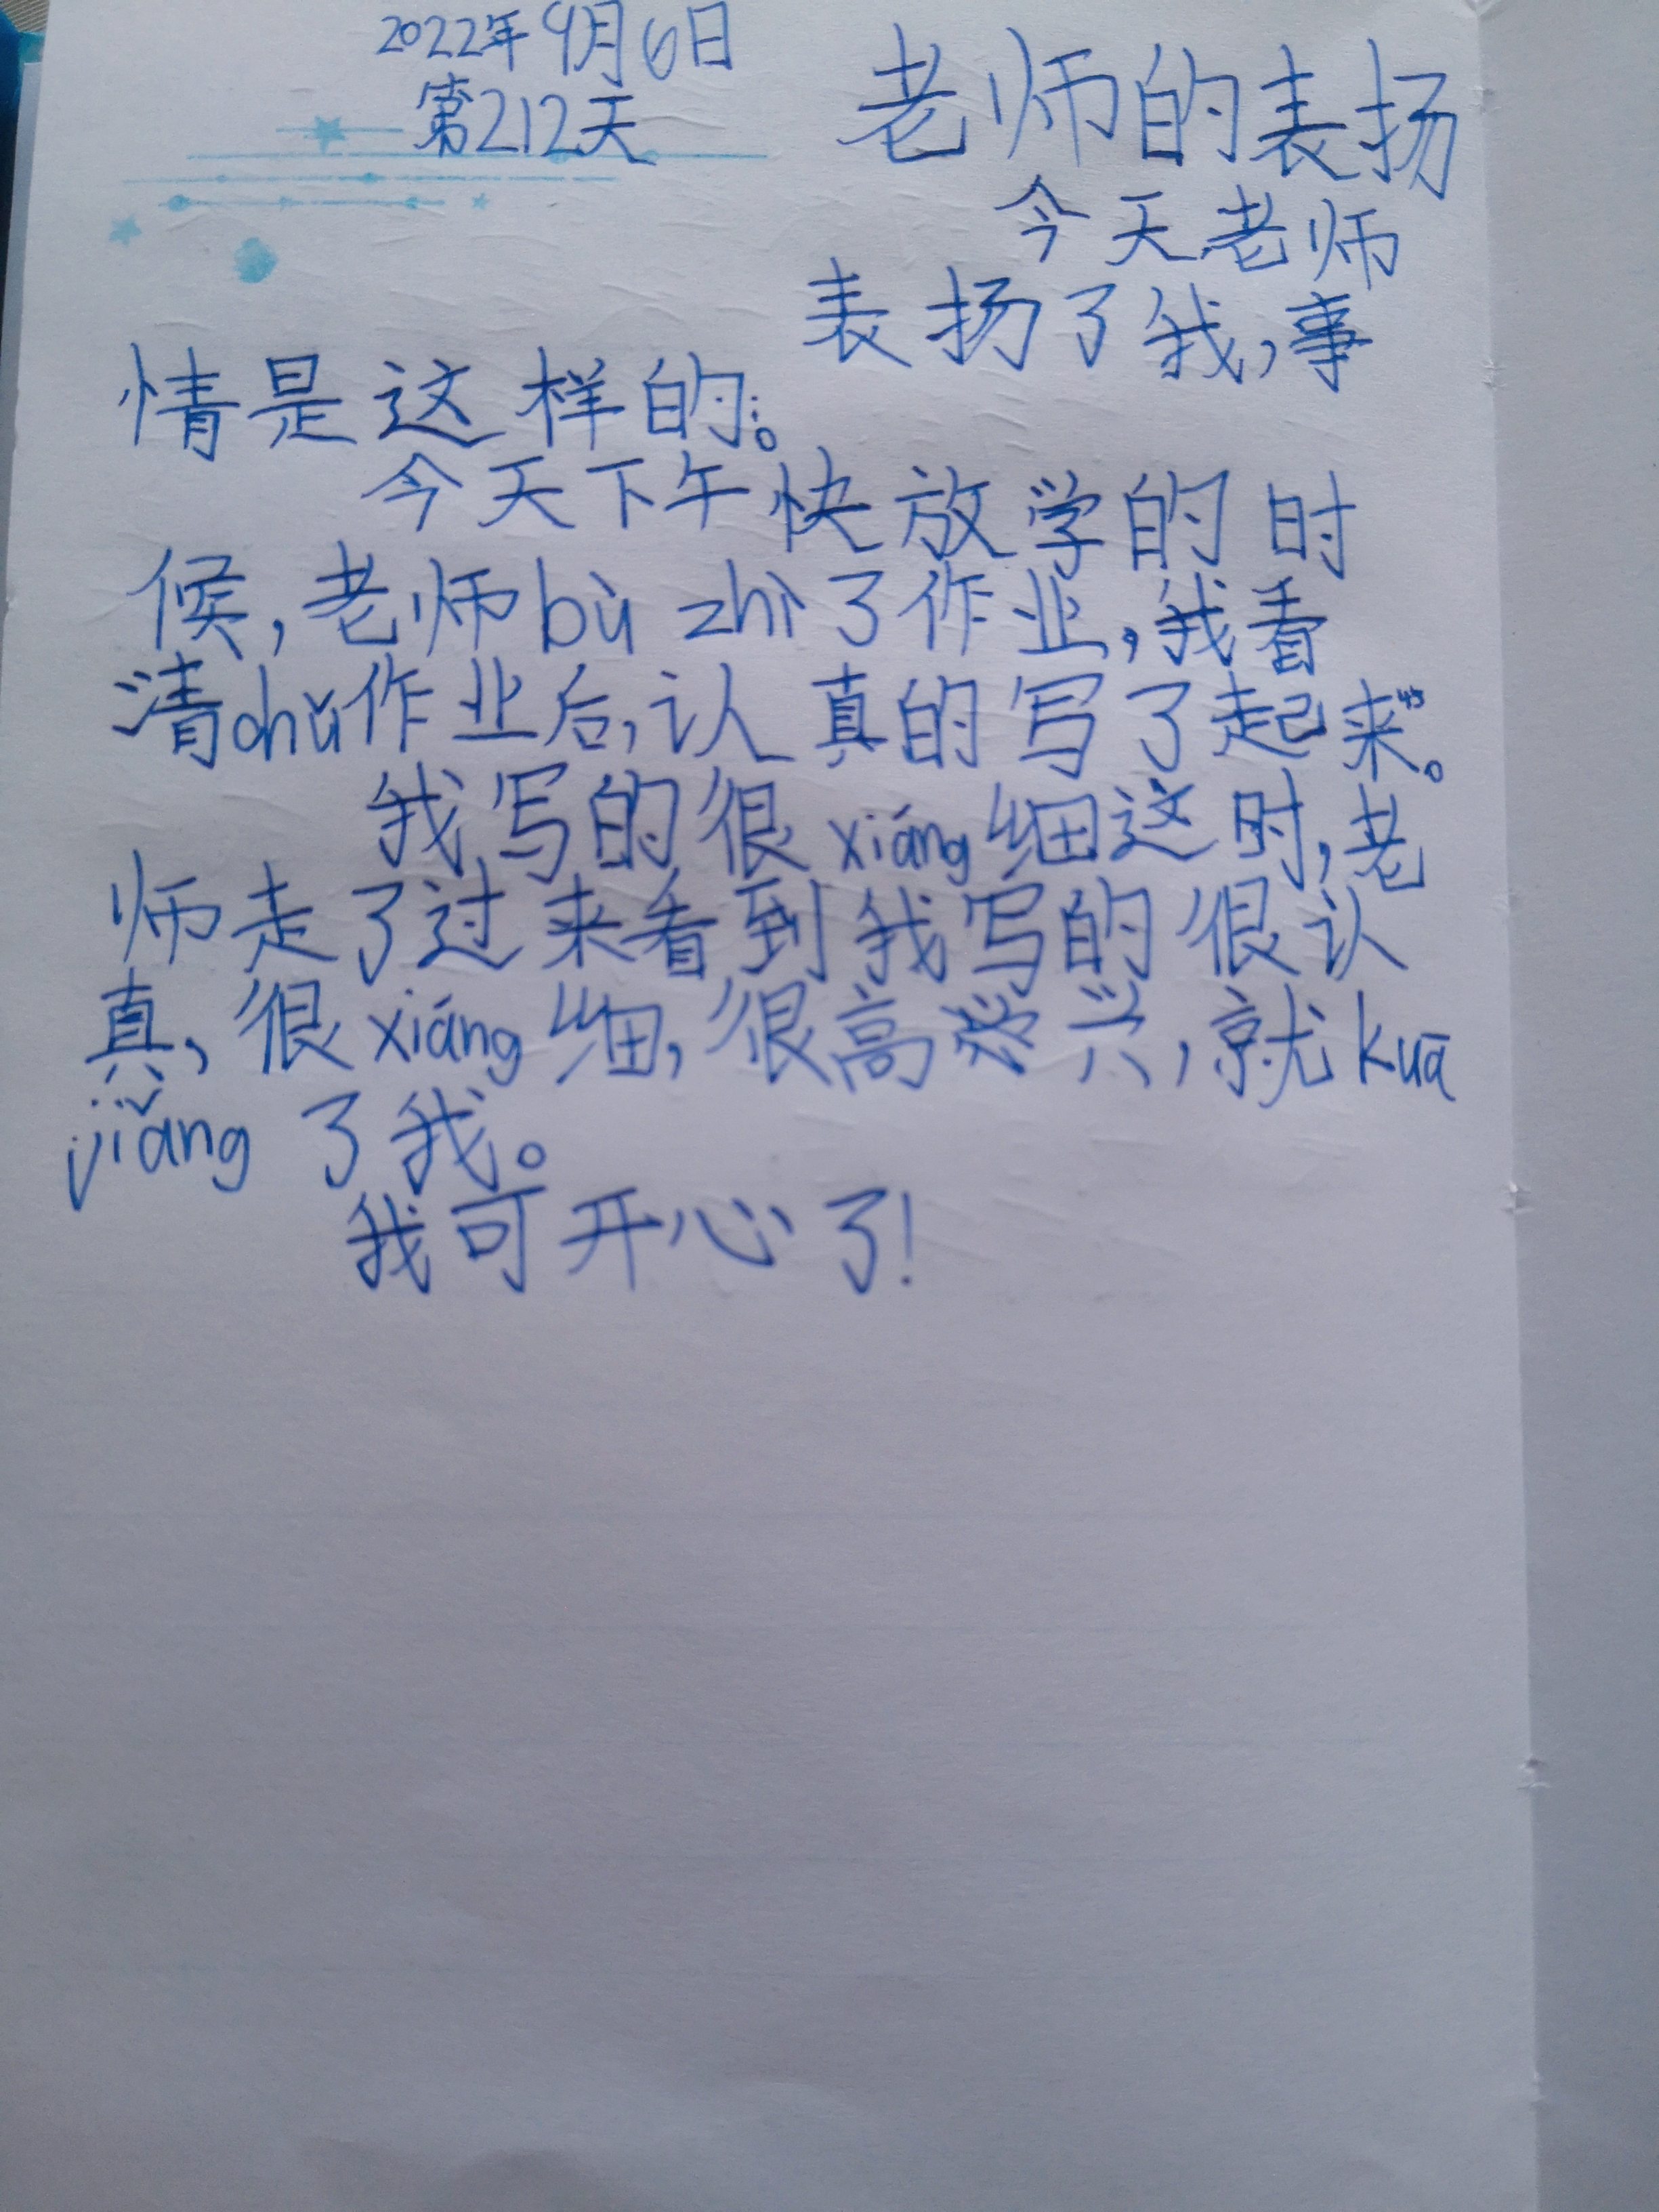 2022年9月6日
第212天
老师的表扬
今天老师
表扬了我,事
情是这样的。
今天下午快放学的时
候,老师bù zhì了作业,我看
清chǔ作业后,认真的写了起来。
我写的很xiáng细这时,老
师走了过来看到我写的很认
真,很xiáng细,很高兴,就kuā
jiǎng了我。
我可开心了!